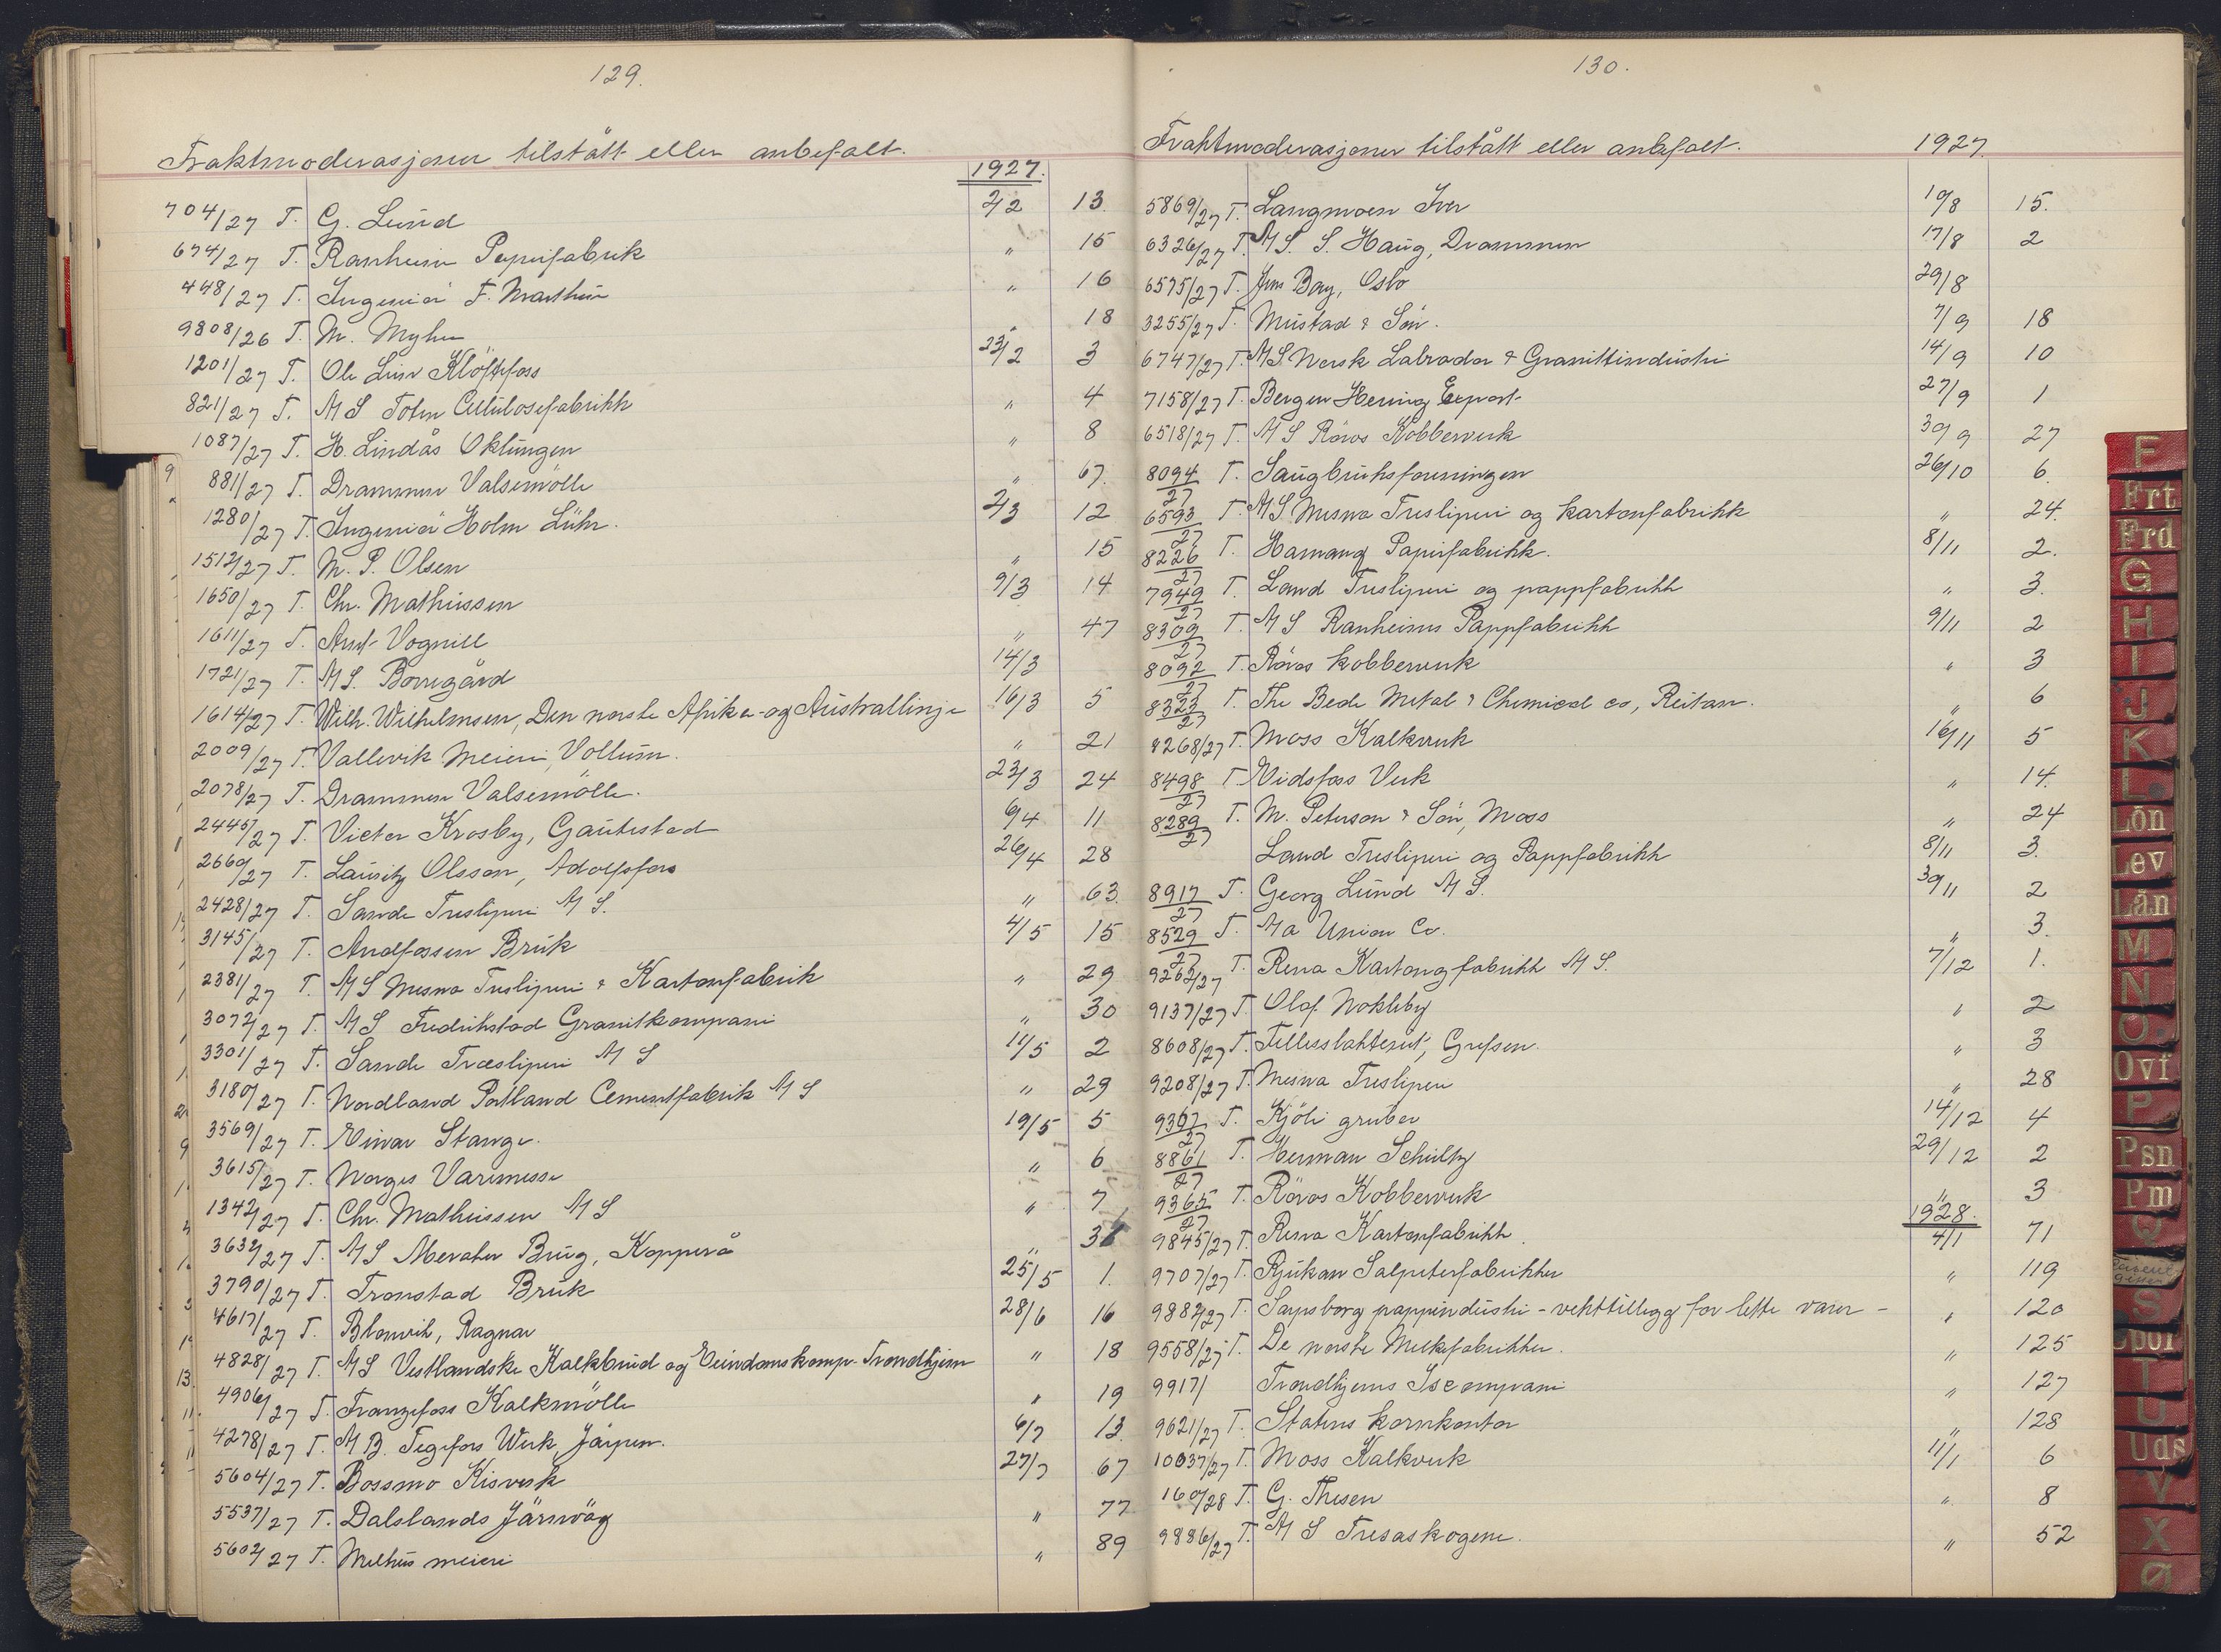 129.
Fraktmoderasjoner tilstått eller anbefalt.
1927.
704/27 T. G. Lund 2/2 13.
674/27 T. Ranheim Papirfabrik " 15
448/27 T. Ingeniør F. " 16
9808/26 T. M. Myhre " 18
1201/27 T. Ole Klöftefoss 23/2 3
821/27 T. A/S Toten Cellulosefabrikk " 4
1087/27 T. H. Lindås Oklungen " 8
881/27 T. Drammen Valsemölle " 67.
1280/27 T. Ingeniör Holm Lühr. 2/3 12
1512/27 T. M. P. Olsen " 15
1650/27 T. Chr. Mathiessen 9/3 14
1611/27 T. Arnt Vognill " 47
1721/27 T. A/S. Borregård 14/3
1614/27 T. Wilh. Wilhelmsen, Den norske Afrika- og Australlinje 16/3 5
2009/27 T. Vallervik Meieri, Vollum. " 21
2078/27 T. Drammen Valsemölle. 23/3 24
2445/27 T. Victor Krosby, Gautestad 6/4 11
2660/27 T. Lauritz Olsson, Adolfsfors 26/4 28
2428/27 T. Sande Tresliperi A/S. " 63.
3145/27 T. Andfossen Bruk 4/5 15
2381/27 T. A/S Mesna Tresliperi & Kartonfabrik " 29
3072/27 T. A/S Fredrikstad Granitkompani " 30
3301/27 T. Sande Træsliperi A/S 11/5 2
3180/27 T. Nordland Portland Cementfabrik A/S " 29
3569/27 T. Einar Stange. 19/5 5
3615/27 T. Norges Varemesse " 6
1342/27 T. Chr. Mathiessen A/S " 7
3632/27 T. A/S Meraker Brug, Kopperå " 31
3790/27 T. Tronstad Bruk 25/5 1.
4617/27 T. Blomvik, Ragnar 28/6 16
4828/27 T. A/S Vestlandske Kalkbrud og Eiendomskomp. Trondhjem " 18
4906/27 T. Franzefoss Kalkmölle " 19
4278/27 T. A.B. Tegefors Werk, Järpen. 6/7 13
5604/27 T. Bossmo Kisverk 27/7 67
5537/27 T. Dalslands Järnväg " 77
5602/27 T. Melhus meieri " 89
130.
Fraktmoderasjoner tilstått eller anbefalt. 1927.
5869/27 T. Langmoen Iver 10/8 15.
6326/27 T. A/S. S. Haug, Drammen 17/8 2
6575/27 T. Jens Bay, Oslo 29/8
3255/27 T. Mustad & Sön. 7/9 18
6747/27 T. A/S. Norsk Labrador & Granittindustri 14/9 10
7158/27 T. Bergen Hering Export 27/9 1
6518/27 T. A/S Röros Kobberverk 30/9 27
8094/27 T. Saugbruksforeningen 26/10 6.
6593/27 T. A/S. Mesna Tresliperi og kartonfabrikk " 24.
8226/27 T. Hamang Papirfabrikk. 8/11 2.
7949/27 T. Land Tresliperi og pappfabrikk " 3.
8309/27 T. A/S Ranheims Pappfabrikk 9/11 2
8092/27 T. Röros kobberverk " 3
8323/27 T. The Bede Metal & Chemical co, Reitan. " 6
8268/27 T. Moss Kalkverk 16/11 5
8498/27 T. Eidsfoss Verk " 14.
8289/27 T. M. Peterson & Sön, Moss " 24
Land Tresliperi og Pappfabrikk 8/11 3.
8917/27 T. Georg Lund A/S. 30/11 2
8529/27 T. A/a Union Co. " 3.
9262/27 T. Rena Kartongfabrikk A/S. 7/12 1.
9137/27 T. Olaf Nokleby " 2
8608/27 T. Fellesslakteriet, Grefsen. " 3
9208/27 T. Mesna Tresliperi " 28
9367/27 T. Kjöli gruber 14/12 4
8861/27 T. Herman Schultz 29/12 2
9365/27 T. Röros Kobberverk " 3
1928.
9845/27 T. Rena Kartonfabrikk. 4/1 71
9707/27 T. Rjukan Salpeterfabrikker " 119
9882/27 T. Sarpsborg pappindustri - vekttillegg for lette varer - " 120
9558/27 T. De norske Melkefabrikker. " 125
9917/ Trondhjems Iscompani " 127
9621/27 T. Statens kornkontor " 128
10037/27 T. Moss Kalkverk 11/1 6
160/28 T. G. Thesen " 8
9886/27 T. A/S Tresaskogene. " 52
F
Frt
Frd
G
H
I
J
K
L
Lön
Lev
Lån
M
N
O
Ovf
P
Psn
Pm
Q
S
Spor
T
U
Uds
V
X
Ø